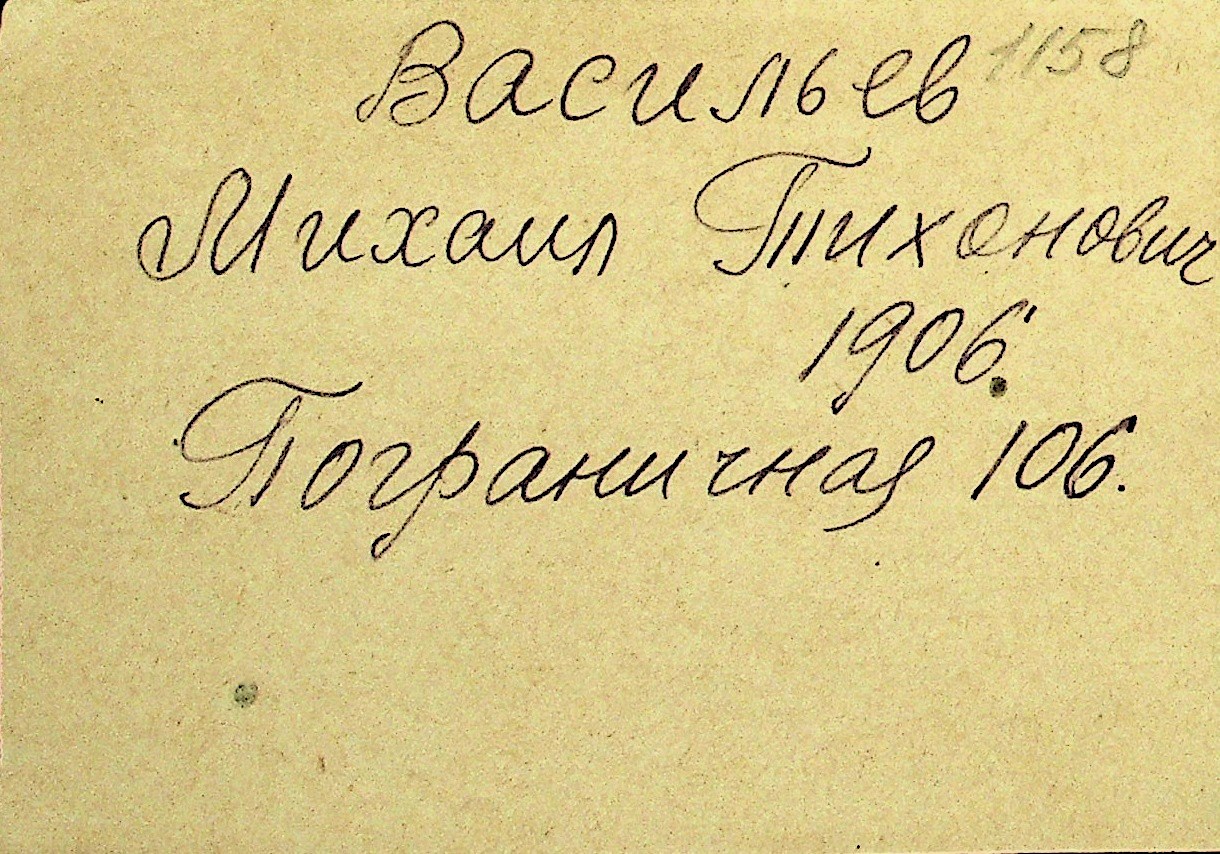 Васильев 1158
Михаил Тихонович
1906.
Пограничная 106.